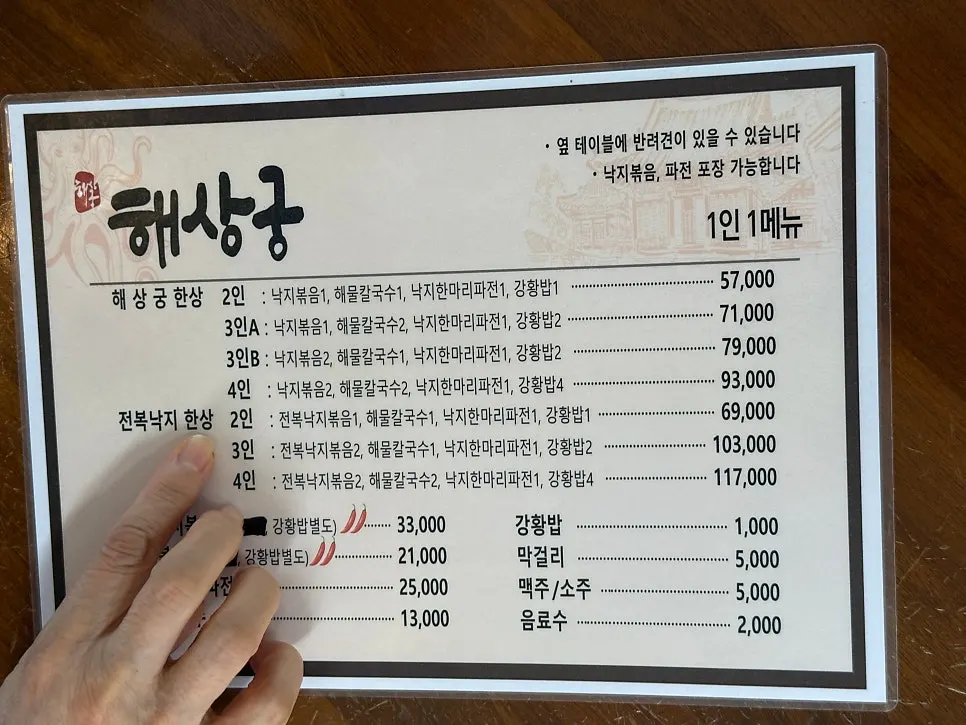 · 옆 테이블에 반려견이 있을 수 있습니다
· 낙지볶음, 파전 포장 가능합니다
해상궁
해상궁
1인 1메뉴
해 상 궁 한상 2인 : 낙지볶음1, 해물칼국수1, 낙지한마리파전1, 강황밥1 57,000
3인A : 낙지볶음1, 해물칼국수2, 낙지한마리파전1, 강황밥2 71,000
3인B : 낙지볶음2, 해물칼국수1, 낙지한마리파전1, 강황밥2 79,000
4인 : 낙지볶음2, 해물칼국수2, 낙지한마리파전1, 강황밥4 93,000
전복낙지 한상 2인 : 전복낙지볶음1, 해물칼국수1, 낙지한마리파전1, 강황밥1 69,000
3인 : 전복낙지볶음2, 해물칼국수1, 낙지한마리파전1, 강황밥2 103,000
4인 : 전복낙지볶음2, 해물칼국수2, 낙지한마리파전1, 강황밥4 117,000
, 강황밥별도) 33,000
, 강황밥별도) 21,000
파전 25,000
13,000
강황밥 1,000
막걸리 5,000
맥주/소주 5,000
음료수 2,000